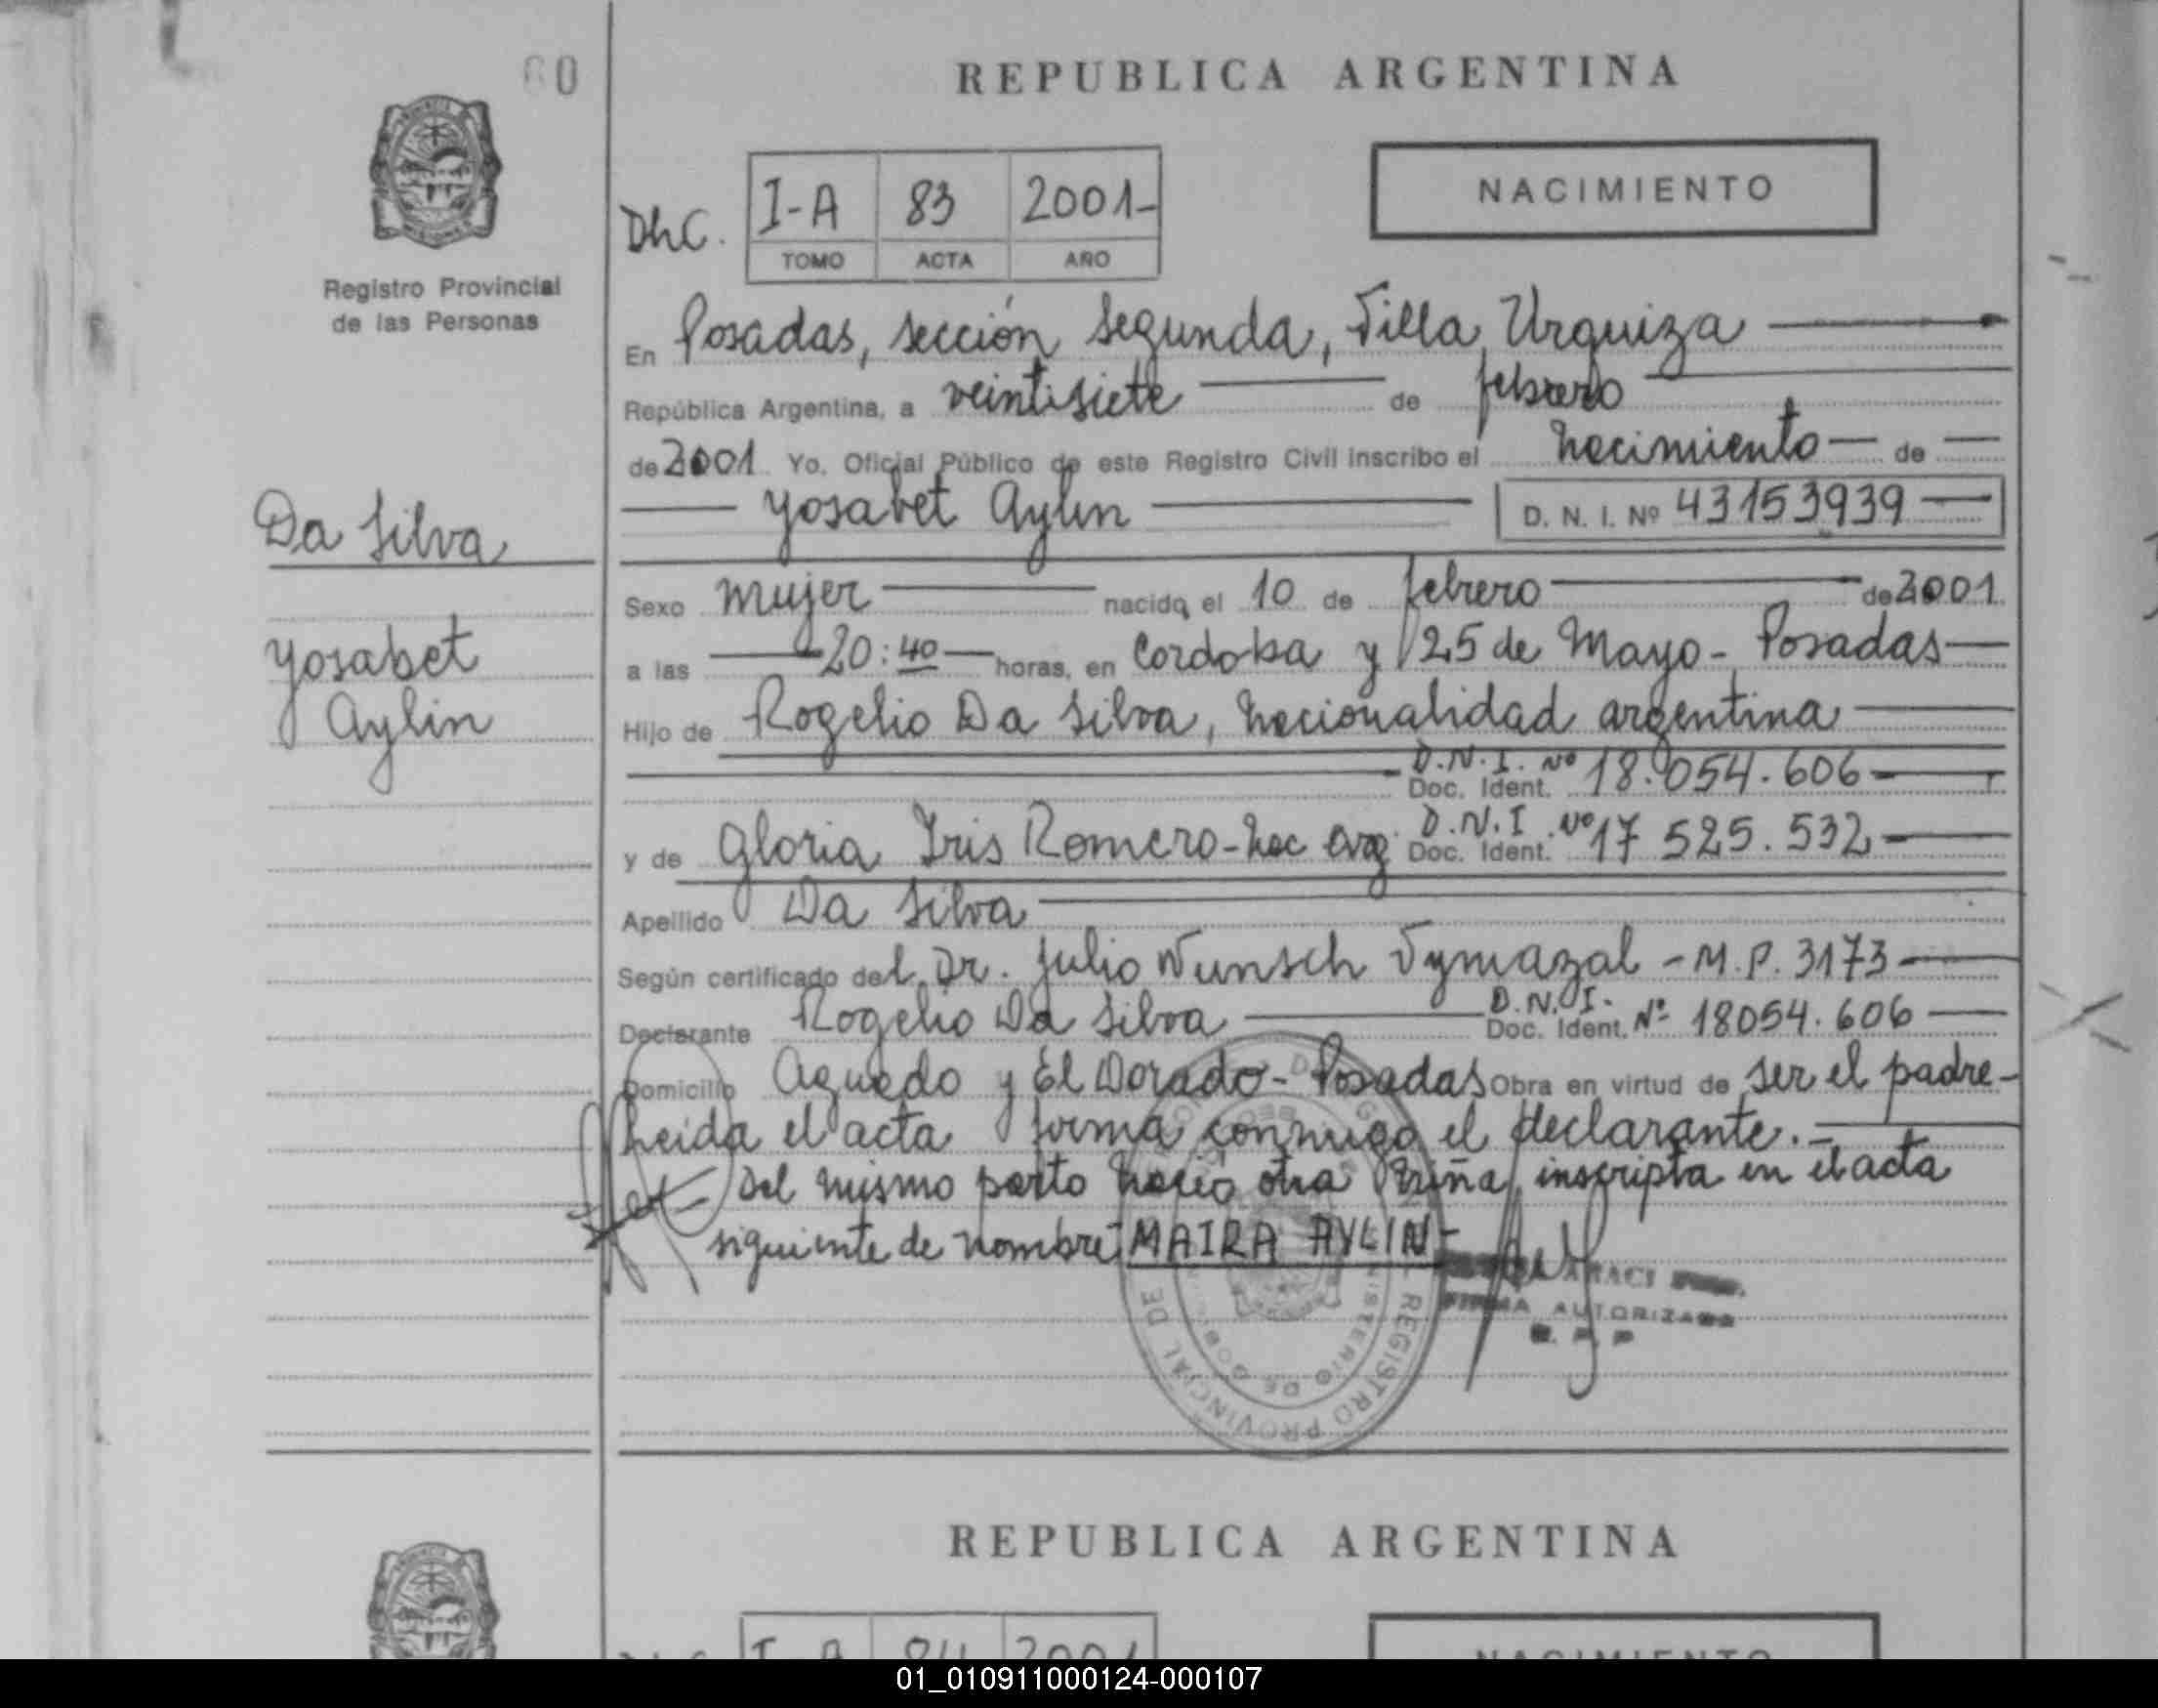 60
REPUBLICA ARGENTINA
NACIMIENTO
DhC.
I-A 83 2001-
TOMO ACTA AÑO
Registro Provincial
de las Personas
En Posadas, sección Segunda, Villa Urquiza
República Argentina, a veintisiete de febrero
de 2001 Yo, Oficial Público de este Registro Civil inscribo el nacimiento de
Yosabet Aylin D. N. I. Nº 43153939
Da Silva
Yosabet
Aylin
Sexo mujer nacida el 10 de febrero de 2001
a las 20:40 horas, en Cordoba y 25 de Mayo - Posadas
Hijo de Rogelio Da Silva, nacionalidad argentina
D.N.I. Nº
Doc. Ident. 18.054.606
y de Gloria Iris Romero - nac arg. D.N.I. Nº
Doc. Ident. 17 525.532
Apellido Da Silva
Según certificado del Dr. Julio Wunsch Vymazal - M.P. 3173
Declarante Rogelio Da Silva D.N.I.
Doc. Ident. Nº 18054.606
Domicilio Aguado y El Dorado - Posadas Obra en virtud de ser el padre-
Leida el acta firma conmigo el declarante.-
Del mismo parto nació otra niña, inscripta en el acta
siguiente de nombre: MAIRA AYLIN-
FIRMA AUTORIZADA
R. P. P
REGISTRO PROVINCIAL DE
MINISTERIO DE GOB.
REPUBLICA ARGENTINA
I-A 84 2001
NACIMIENTO
01_010911000124-000107